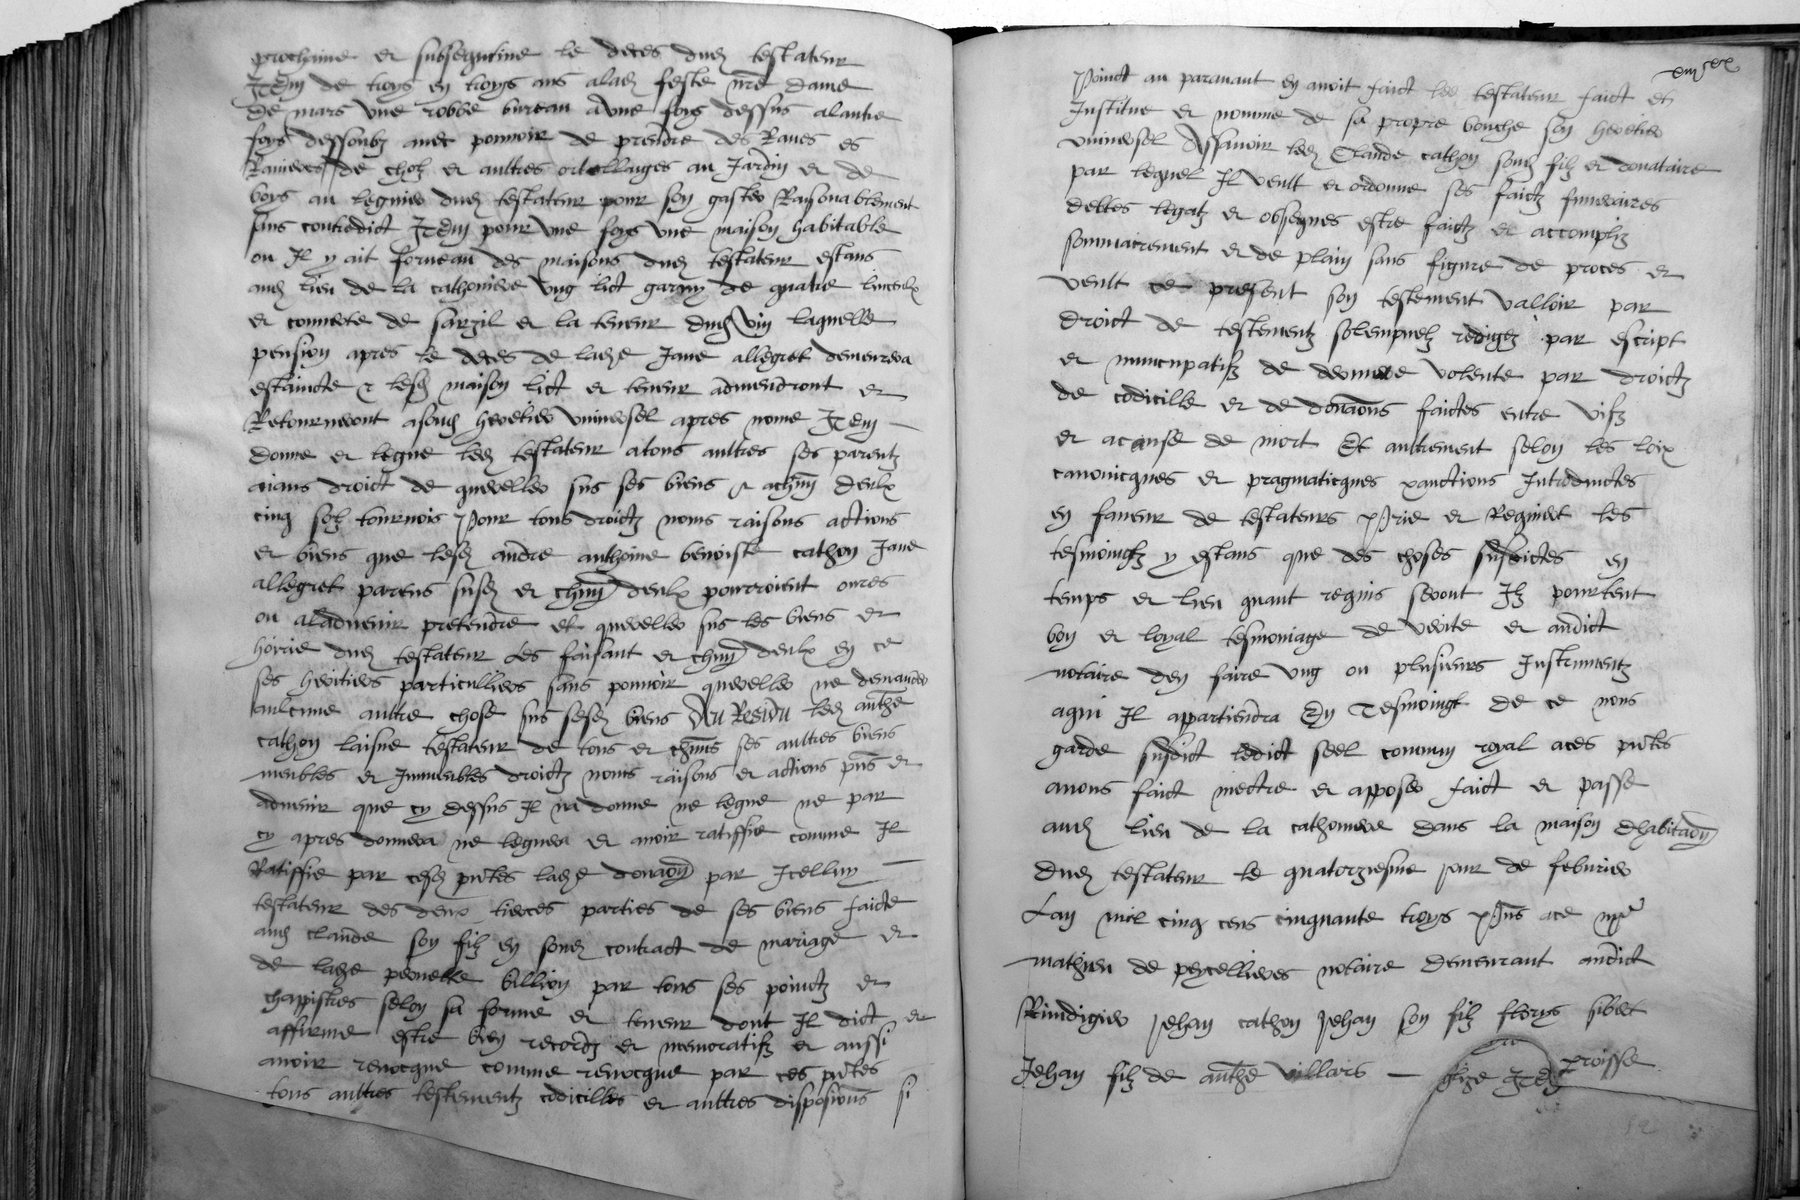 prochaine et subsequtive le deces dud testateur
Item de troys en troys ans alad feste nre dame
de mars une robbe bureau a une foys dessus alautre
foys dessoubz avec pouvoir de prendre des Raves es
Ravieres de cholz et aultres ortollaiges au Jardin et de
boys au leguier dud testateur pour son gaster Raisonablement
sans contredict Item pour une foys une maison habitable
ou Il y ait forneau des maisons dud testateur estans
aud lieu de la cathoniere ung lict garny de quatre linceulx
et couverte de sarzil et la teneur dud vin laquelle
pension apres le deces de ladze Jane allegret demeurera
estaincte & lesd maison lict et teneur adviendront et
Retourneront asond heretier universel apres nome Item
donne et legue led testateur atous aultres ses parentz
aians droict de quereller sus ses biens & achun deulx
cinq solz tournois pour tous droictz noms raisons actions
et biens que lesd andre anthoine benoiste cathon Jane
allegret parens susd et chun deulx pourroient ores
ou aladvenir pretendre et quereller sus les biens et
hoirie dud testateur les faisant et chun deulx en ce
ses heretiers particulliers sans pouvoir quereller ne demander
aulcune aultre chose sus sesd biens Du Residu led anthe
cathon laisne testateur de tous et chuns ses aultres biens
meubles et Immeubles droictz noms raisons et actions pns et
advenir que cy dessus Il na donne ne legue ne par
cy apres donnera ne leguera et avoir ratiffie comme Il
Ratiffie par cesd pntes ladze donaon par Icelluy
testateur des deux tierces parties de ses biens faicte
aud claude son filz en sond contract de mariage et
de ladze peronelle billion par tous ses poinctz et
chappistres selon sa forme et teneur dont Il dict et
affirme estre bien recordz et memoratifz et aussi
avoir revocque comme revocque par ces pntes
tous aultres testementz codicilles et aultres disposions si
Point au paravant en avoit faict led testateur faict et
Institue et nomme de sa propre bouche son heretier
universel Assavoir led Claude cathon sond filz et donataire
par lequel Il veult et ordonne ses faictz funeraires
debtes legatz et obseques estre faictz et accompliz
sommairement et de plain sans figure de proces et
veult ce present son testement valloir par
droict de testementz solempnelz redigez par escript
et nuncupatifz de derniere volente par droictz
de codicille et de donaons faictes entre vifz
et acause de mort Et aultrement selon les loix
canonicques et pragmaticques xanctions Introductes
en faveur de testateurs prie et Requiert les
tesmoingz y estans que des choses susdictes en
temps et lieu quant requis seront Ilz pourtent
bon et loyal tesmoniage de verite et audict
notaire den faire ung ou plusieurs Instrumentz
aqui Il appartiendra En Tesmoingt de ce nous
garde susdict ledict seel commun royal aces pntes
avons faict mectre et apposer faict et passe
aud lieu de la cathoniere dans la maison dhabitaon
dud testateur le quatorziesme jour de febvrier
Lan mil cinq cens cinquante troys pns ace me
mathieu de notaire demeurant audict
Jehan cathon Jehan son filz floris sibert
Jehan filz de anthe villars